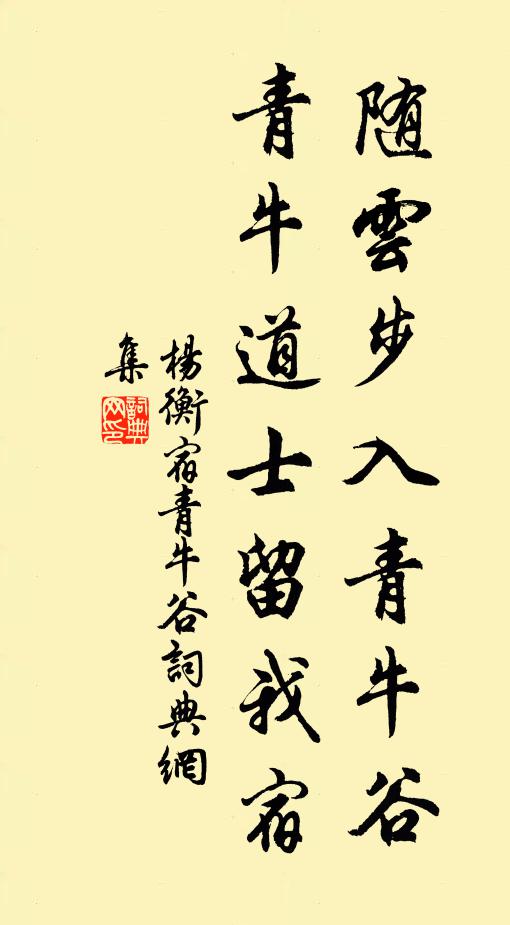 随雲步入青牛谷
青牛道士留我宿
楊衡宿青牛谷詞典網
集
詞典网印